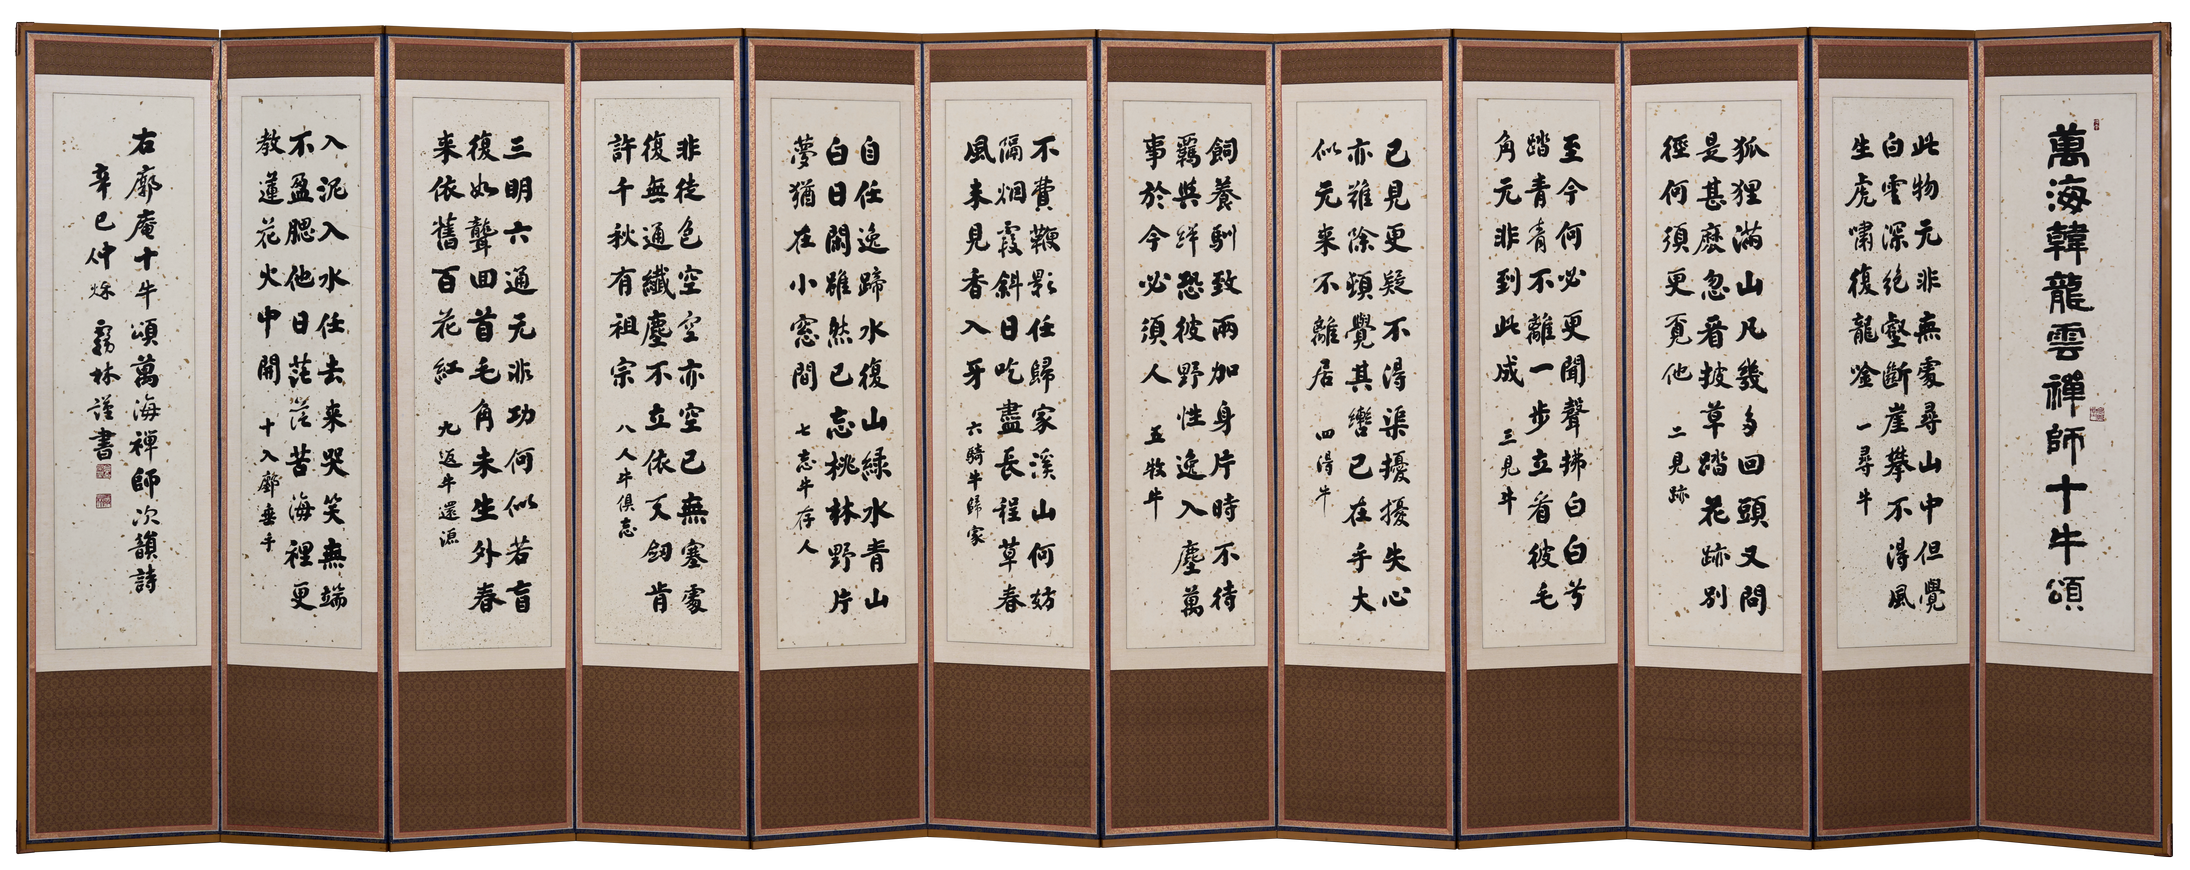 萬海韓龍雲禪師十牛頌
此物元非無處尋山中但覺
白雲深絶壑斷崖攀不得風
生虎嘯復龍唫
一尋牛
狐狸滿山凡幾多回頭又問
是甚麽忽看披草踏花跡別
徑何須更覓他
二見跡
至今何必更聞聲拂白白兮
踏青青不離一步立看彼毛
角元非到此成
三見牛
已見更疑不得渠擾擾失心
亦難除頓覺其轡已在手大
似元来不離居
四得牛
飼養馴致兩加身片時不待
羈與絆恐彼野性逸入塵萬
事於今必須人
五牧牛
不費鞭影任歸家溪山何妨
隔烟霞斜日吃盡長程草春
風未見香入牙
六騎牛歸家
自任逸蹄水復山緑水青山
白日閑雖然已忘桃林野片
夢猶在小窓間
七忘牛存人
非徒色空空亦空已無塞處
復無通纖塵不立依天劒肯
許千秋有祖宗
八人牛俱忘
三明六通元非功何似若盲
復如聾回首毛角未生外春
来依舊百花紅
九返牛還源
入泥入水任去来哭笑無端
不盈腮他日茫茫苦海裡更
教蓮花火中開
十入鄽垂手
右廓庵十牛頌萬海禪師次韻詩
辛巳仲烁 霧林謹書